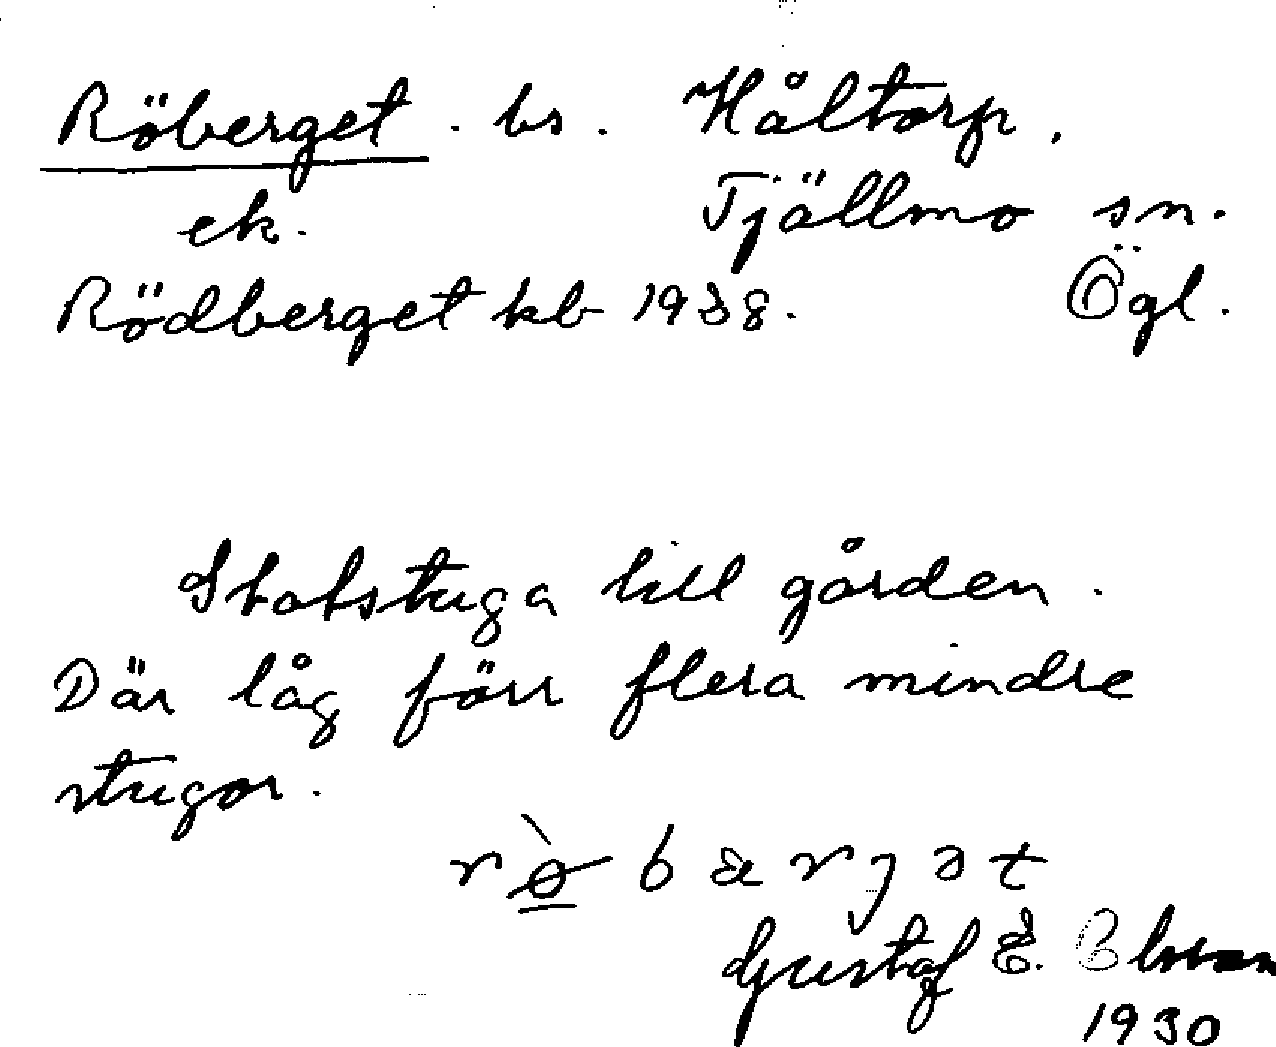 Röberget. bs. Håltorp.
ek. Tjällmo sn.
Rödberget kb 1938. Ögl.
Statstuga till gården.
Där låg förr flera mindre
stugor.
rø̀bærjət
Gustaf E.
1930